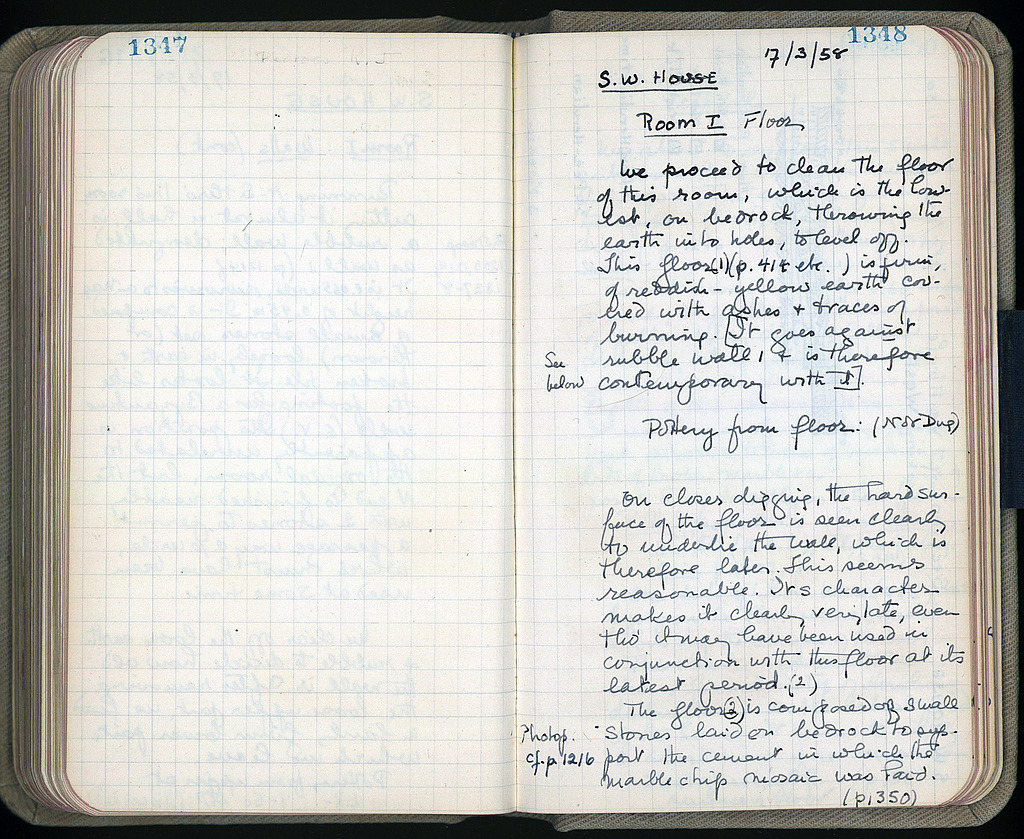 1347
1348
17/3/58
S.W. HOUSE
Room I Floor
We proceed to clean the floor
of this room, which is the low-
est, on bedrock, throwing the
earth into holes, to level off.
This floor (1) (p. 418 etc. ) is firm,
of reddish-yellow earth cov-
ered with ashes + traces of
burning. [It goes against
rubble wall 1 + is therefore
See
below
contemporary with it].
Pottery from floor: (Not Dug)
On closer digging, the hard sur-
face of the floor is seen clearly
to underlie the wall, which is
therefore later. This seems
reasonable. Its character
makes it clearly very late, even
tho' it may have been used in
conjunction with this floor at its
latest period. (2)
The floor (2) is composed of small
Photog.
cf. p. 1216
stones laid on bedrock to sup-
port the cement in which the
marble chip mosaic was laid.
(p. 1350)